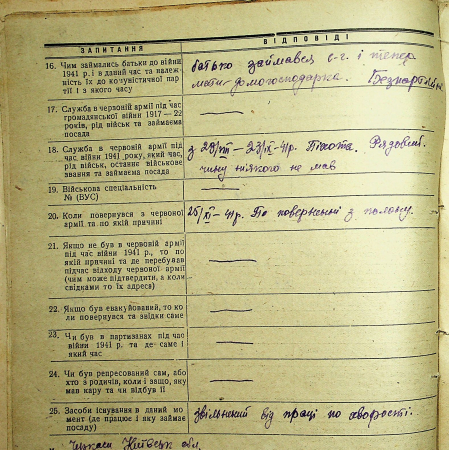 ЗАПИТАННЯ
ВІДПОВІДІ
16. Чим займались батьки до війни
1941 р. і в даний час та належ-
ність їх до комуністичної пар-
тії і з якого часу
батько займався с-г. і тепер
мати домогосподарка. Безпартійні
17. Служба в червоній армії під час
громадянської війни 1917 — 22
років, рід військ та займаєма
посада
18. Служба в червоній армії під
час війни 1941 року, який час,
рід військ, останнє військове
звання та займаєма посада
з 29/VIII — 23/IX-41р. Піхота. Рядовий.
чину ніякого не мав
19. Військова спеціальність
№ (ВУС)
20. Коли повернувся з червоної
армії та по якій причині
25/XI-41р. По поверненні з полону.
21. Якщо не був в червоній армії
під час війни 1941 р., то по
якій причині та де перебував
під час відходу червової армії
(чим може підтвердити, а коли
свідками то їх адреса)
22. Якщо був евакуйований, то ко-
ли повернувся та відки саме
23. Чи був в партизанах під час
війни 1941 р. та де саме і
який час
24. Чи був репресований сам, або
хто з родичів, коли і защо, яку
мав кару та чи відбув її
25. Засоби існування в даний мо-
мент (де працює і яку займає
посаду)
звільнений від праці по хворості.
Черкаси Київськ обл.